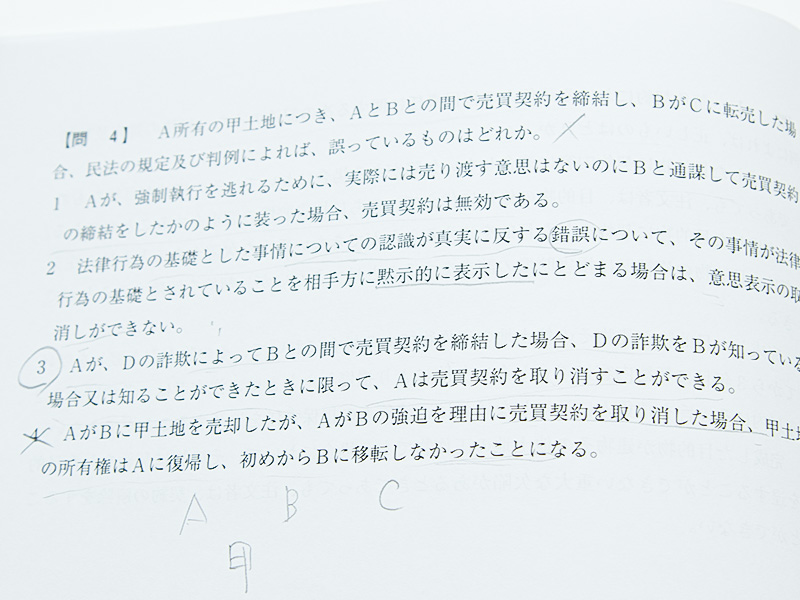 【問　4】　A所有の甲土地につき、AとBとの間で売買契約を締結し、BがCに転売した場
合、民法の規定及び判例によれば、誤っているものはどれか。
1　Aが、強制執行を逃れるために、実際には売り渡す意思はないのにBと通謀して売買契約
の締結をしたかのように装った場合、売買契約は無効である。
2　法律行為の基礎とした事情についての認識が真実に反する錯誤について、その事情が法律
行為の基礎とされていることを相手方に黙示的に表示したにとどまる場合は、意思表示の取
消しができない。
3　Aが、Dの詐欺によってBとの間で売買契約を締結した場合、Dの詐欺をBが知っている
場合又は知ることができたときに限って、Aは売買契約を取り消すことができる。
4　AがBに甲土地を売却したが、AがBの強迫を理由に売買契約を取り消した場合、甲土地
の所有権はAに復帰し、初めからBに移転しなかったことになる。
A B C
甲